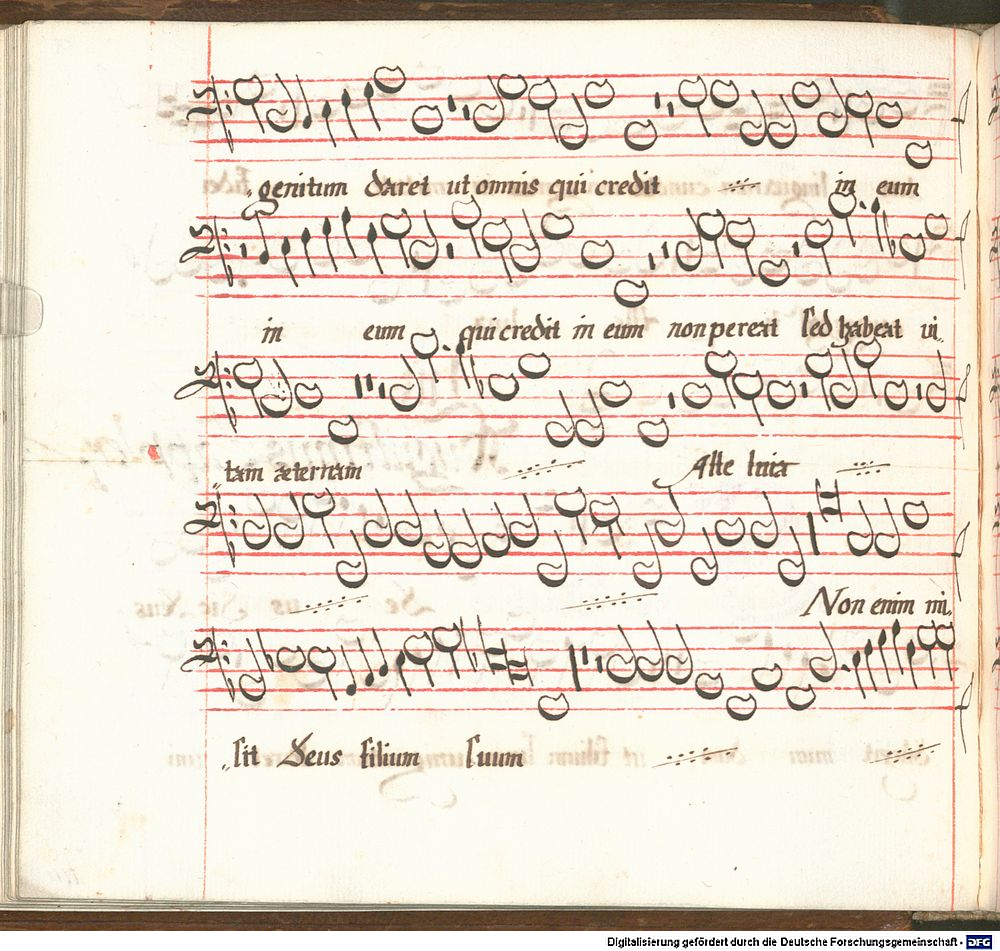 „genitum daret ut omnis qui credit in eum
in eum qui credit in eum non pereat sed habeat vi„
„tam æternam Alle luia
Non enim mi„
„sit Deus filium suum
Digitalisierung gefördert durch die Deutsche Forschungsgemeinschaft - DFG